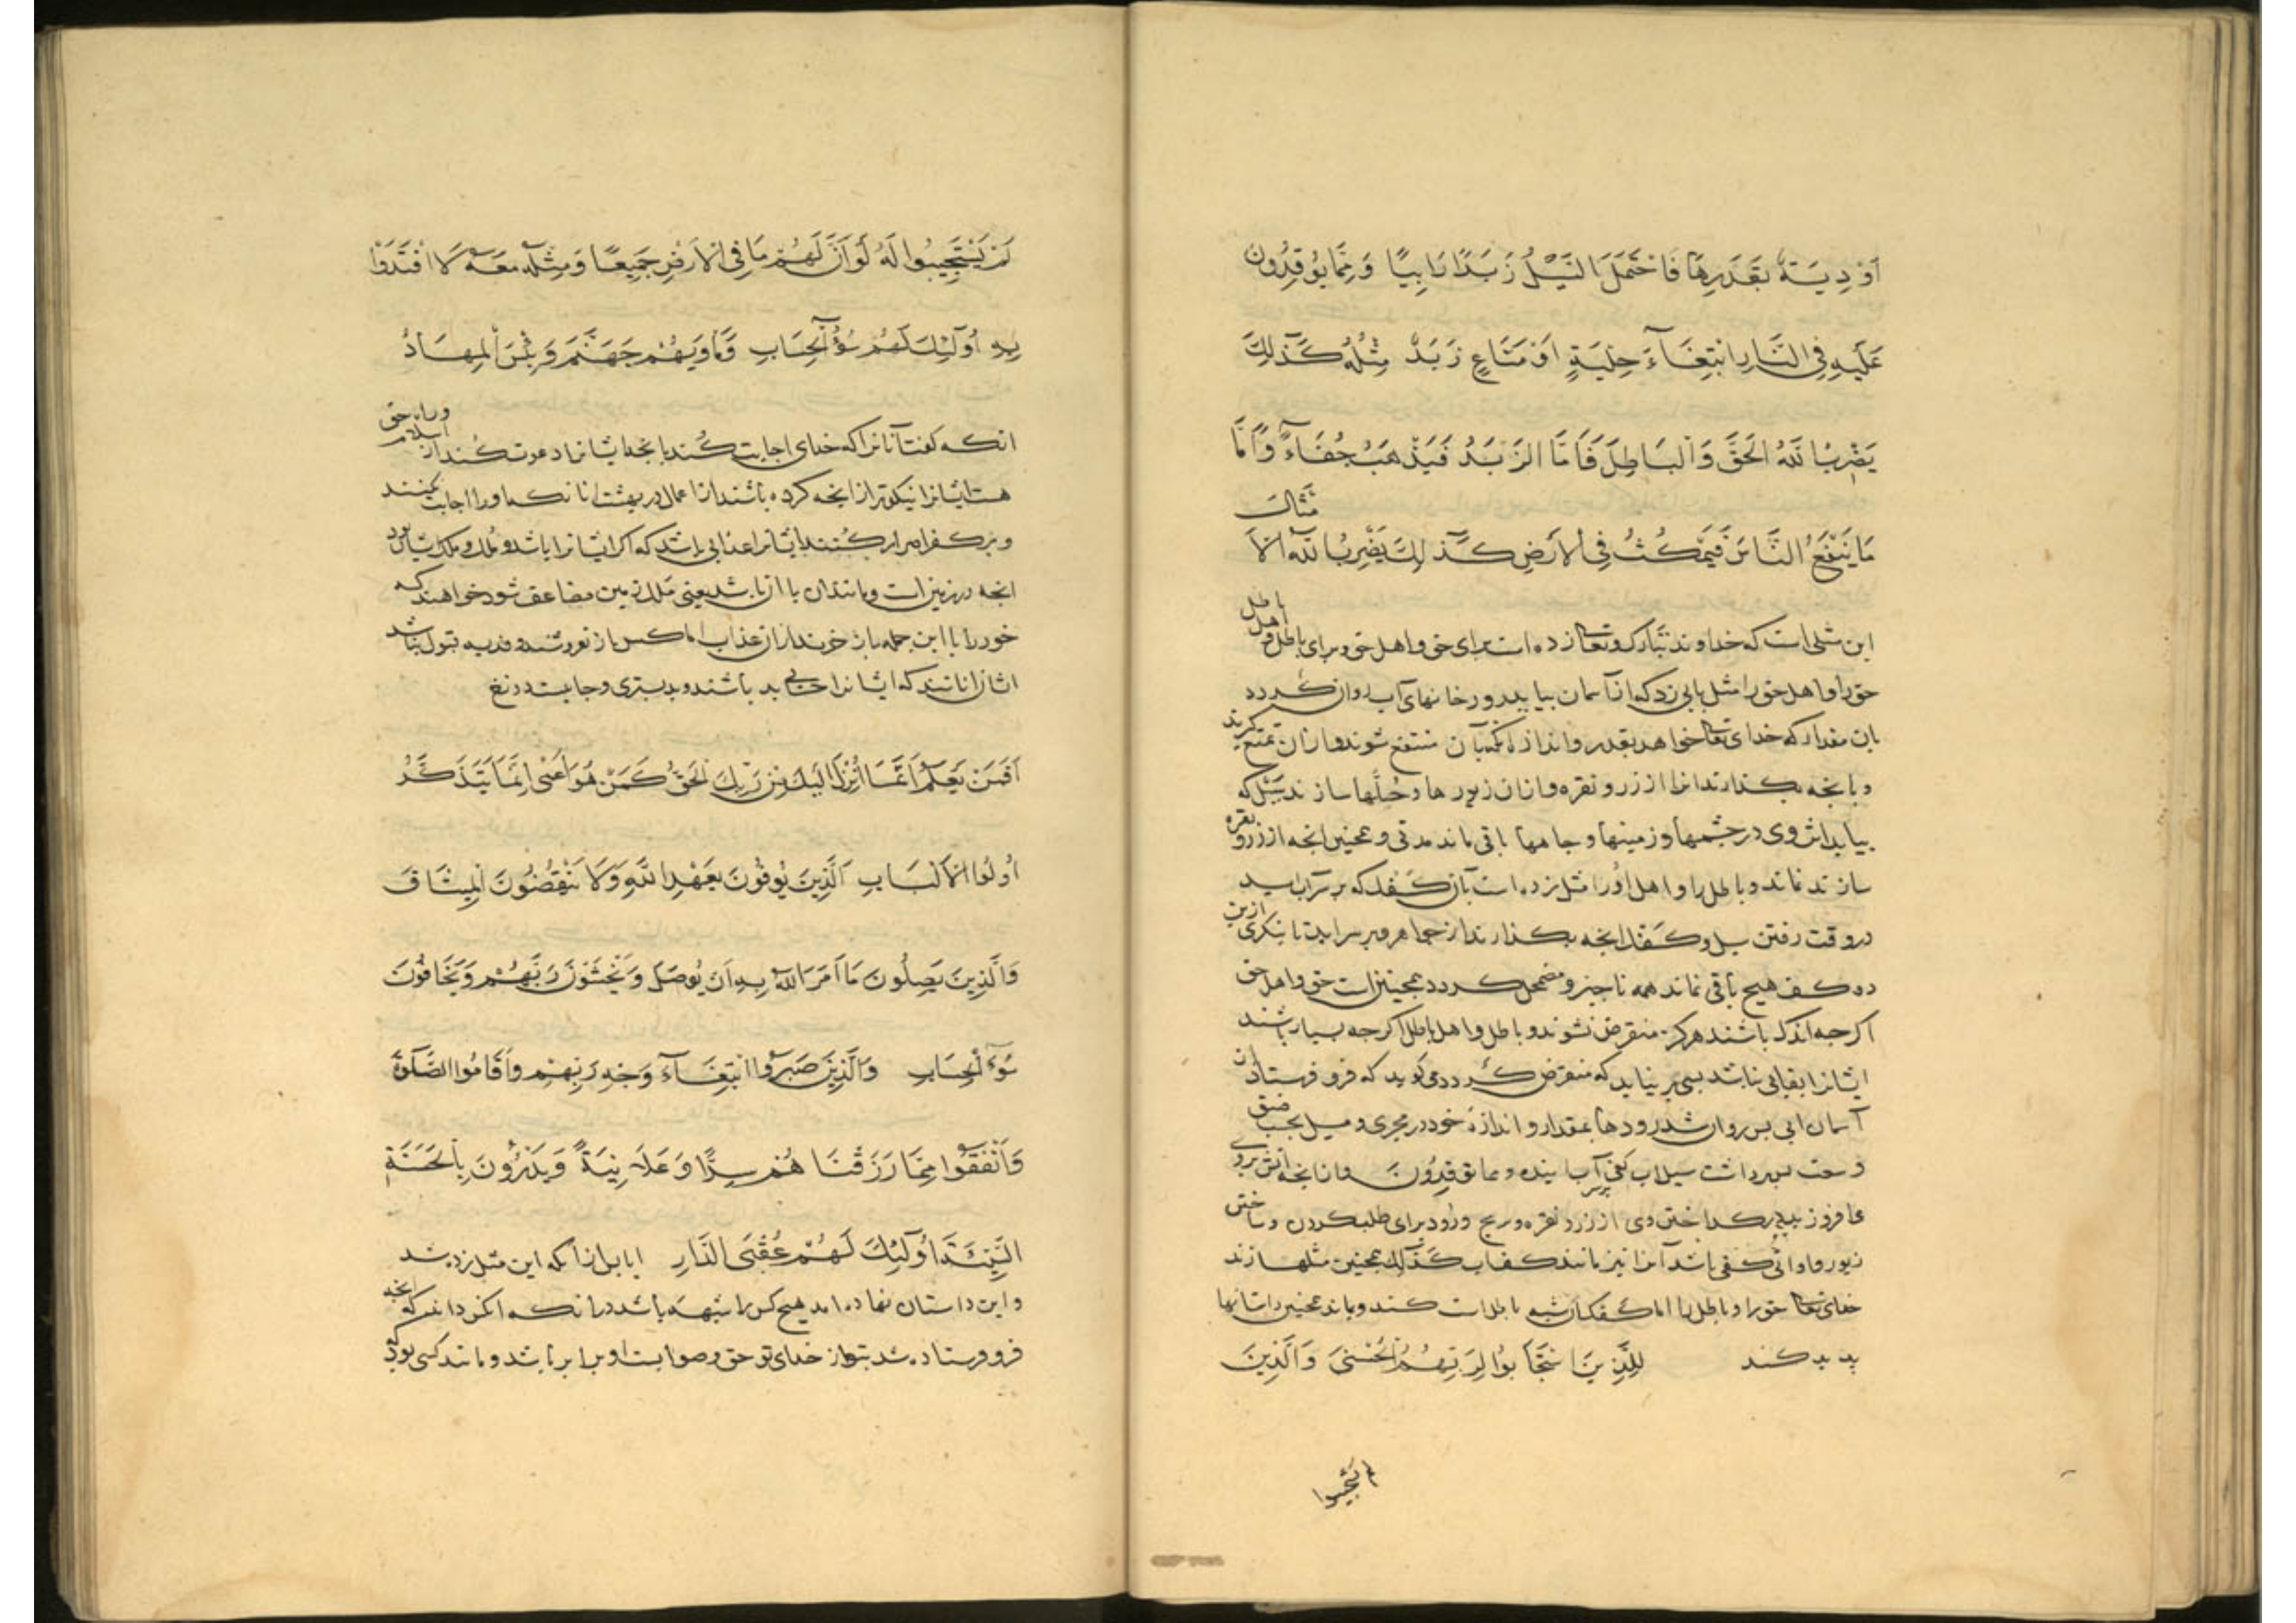 اَوْدِيَةٌ بِقَدَرِهَا فَاحْتَمَلَ السَّيْلُ زَبَدًا رَابِيًا وَمِمَّا يُوقِدُونَ
عَلَيْهِ فِى النَّارِ ابْتِغَآءَ حِلْيَةٍ اَوْ مَتَاعٍ زَبَدٌ مِثْلُهُ كَذٰلِكَ
يَضْرِبُ اللّٰهُ الْحَقَّ وَالْبَاطِلَ فَاَمَّا الزَّبَدُ فَيَذْهَبُ جُفَآءً وَاَمَّا
مَا يَنْفَعُ النَّاسَ فَيَمْكُثُ فِى الْاَرْضِ كَذٰلِكَ يَضْرِبُ اللّٰهُ الْاَ مْثَالَ
این مثلی است که خداوند تبارک وتعا زده است برای حق واهل حق وبرای باطل و اهل باطل
حق را واهل حق را مثل بابی زد که از آسمان بیاید و رودخانهای آب روان کردد
بان مقدار که خدای تعا خواهد بقدر واندازه بان منتفع شوند وازان تمتع کیرند
وبانجه بکدازند انرا از زر ونقره وازان زیورها وحلّها سازند سیل که
بیاید اثر وی در جشمها وزمینها وجامها باقی ماند مدتی وهمجنین انجه از زر و نقره
سازند بماند وباطل را واهل اورا مثل زده است بان کفک که بر سر آب اید
در وقت رفتن سیل وکفک انجه بکدازند از جواهر وبر سر اید تا بنکری ازین
دو کف هیج باقی نماند همه ناجیز ومضمحل کردد همجنین است حق واهل حق
اکرجه اندک باشند هرکز منقرض نشوند وباطل واهل باطل اکرجه بسیار باشند
ایشانرا بقائی نباشد بسی بر نیاید که منقرض کردد می کوید که فرو فرستاد از
آسمان ابی بس روان شد رودها بمقدار واندازهٔ خود در مجری ومسیل بحسب ضیق
وسعت ببرداشت سیلاب کفی بر سر آب اینده ومما توقدون وازانجه اتش بروی
می افروزید بکداختن وی از زر ونقره وبرنج وروود برای طلب کردن وساختن
زیور واوانی کفی باشد آنرا نیز مانند کف آب کذلک همجنین مثلها زند
خدای تعا حق را وباطل را اما کفک آن شبه باطل است کند وباند همجنین داستانها
بدید کند لِلَّذِينَ اسْتَجَابُوا لِرَبِّهِمُ الْحُسْنٰى وَالَّذِينَ
لم یستجیبوا
لَمْ يَسْتَجِيبُوا لَهُ لَوْ اَنَّ لَهُمْ مَا فِى الْاَرْضِ جَمِيعًا وَمِثْلَهُ مَعَهُ لَا افْتَدَوْا
بِهِ اُولٰٓئِكَ لَهُمْ سُوٓءُ الْحِسَابِ وَمَاْوٰيهُمْ جَهَنَّمُ وَبِئْسَ الْمِهَادُ
انکه کفت آنانرا که خدای اجابت کنند بانجه ایشانرا دعوت کند از اسلام وراه حق
هست ایشانرا نیکوتر ازانجه کرده باشند از اعمال در بهشت انانکه اورا اجابت نکنند
وبر کفر اصرار کنند ایشانرا عذابی باشد که اکر ایشانرا باشد وملک وملک ایشان بود
انجه در زمین است ومانند ان با ان باشد یعنی ملک زمین مضاعف شود خواهند که
خود را با این جمله باز خرند از ان عذاب اما کس باز نفروشد وفدیه قبول نباشد
ایشان انانند که ایشانرا حسابی بد باشد وبد بستری وجایست دوزخ
اَفَمَنْ يَعْلَمُ اَنَّمَا اُنْزِلَ اِلَيْكَ مِنْ رَبِّكَ الْحَقُّ كَمَنْ هُوَ اَعْمٰى اِنَّمَا يَتَذَكَّرُ
اُولُوا الْاَلْبَابِ اَلَّذِينَ يُوفُونَ بِعَهْدِ اللّٰهِ وَلَا يَنْقُضُونَ الْمِيثَاقَ
وَالَّذِينَ يَصِلُونَ مَا اَمَرَ اللّٰهُ بِهِ اَنْ يُوصَلَ وَيَخْشَوْنَ رَبَّهُمْ وَيَخَافُونَ
سُوٓءَ الْحِسَابِ وَالَّذِينَ صَبَرُوا ابْتِغَآءَ وَجْهِ رَبِّهِمْ وَاَقَامُوا الصَّلٰوةَ
وَاَنْفَقُوا مِمَّا رَزَقْنَا هُمْ سِرًّا وَعَلَانِيَةً وَيَدْرَؤُنَ بِالْحَسَنَةِ
السَّيِّئَةَ اُولٰٓئِكَ لَهُمْ عُقْبَى الدَّارِ ایا بس ازآنکه این مثل زده شد
واین داستان نهاده امد هیج کس را شبهه باشد درانکه انکس داند که انجه
فرو فرستاده شد بتو از خدای تو حق وصوابست او برابر باشد ومانند کسی بود که